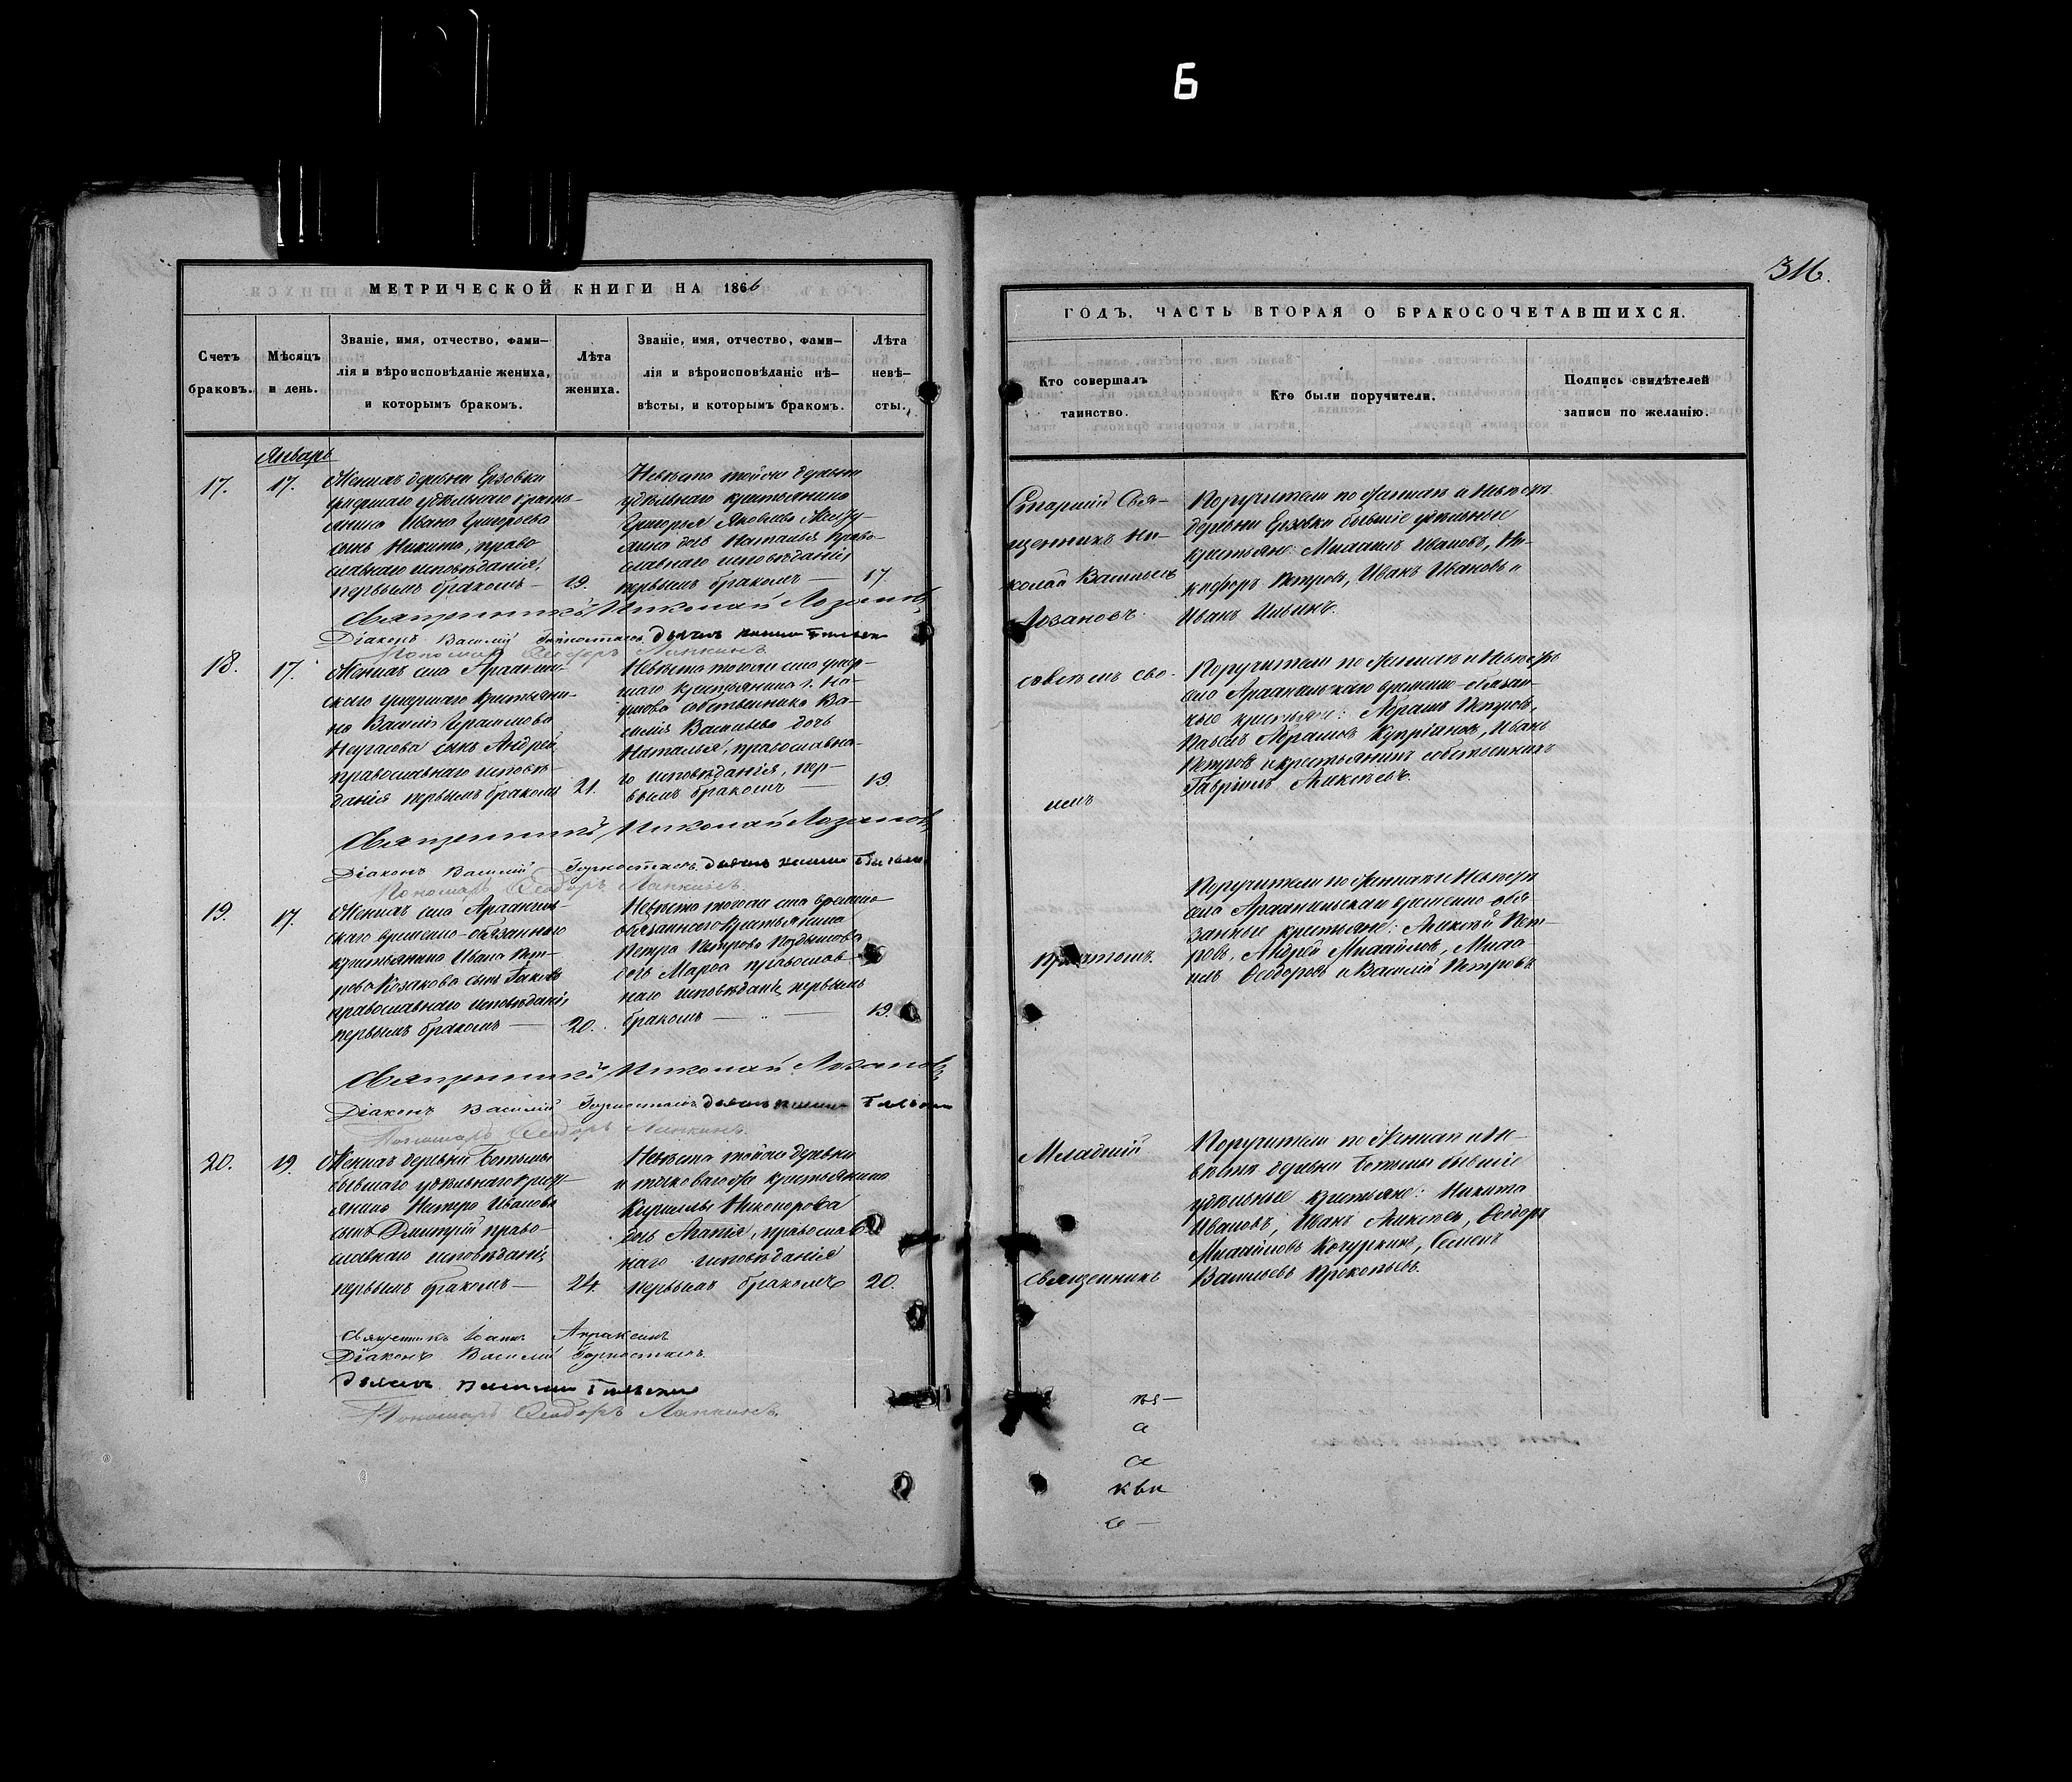 Б
МЕТРИЧЕСКОЙ КНИГИ НА 1866
Счетъ браковъ.
Мѣсяцъ и день.
Званіе, имя, отчество, фами-
лія и вѣроисповѣданіе жениха,
и которымъ бракомъ.
Лѣта жениха.
Званіе, имя, отчество, фами-
лія и вѣроисповѣданіе не-
вѣсты, и которымъ бракомъ.
Лѣта невѣ-
сты.
Январь
17.
17.
Женихъ деревни Ерзовки
умершаго удѣльнаго крестья-
нина Ивана Григорьева
сынъ Никита, право-
славнаго исповѣданія,
первымъ бракомъ —
19.
Невѣста тойже деревни
удѣльнаго крестьянина
Григорья Яковлева
дочь Наталья право-
славнаго исповѣданія,
первымъ бракомъ —
17
Священникъ Николай Лозановъ
Діаконъ Василій Горностаевъ
Пономарь Ѳеодоръ Лапкинъ
18.
17.
Женихъ села Арханъгель-
скаго умершаго крестьяни-
на Василія Герасимова
сынъ Андрей,
православнаго исповѣ-
данія первымъ бракомъ
21.
Невѣста тогоже села умер-
шаго крестьянина
собственника Ва-
силія Васильева дочь
Наталья, православна-
го исповѣданія, пер-
вымъ бракомъ —
19.
Священникъ Николай Лозановъ
Діаконъ Василій Горностаевъ
Пономарь Ѳеодоръ Лапкинъ.
19.
17.
Женихъ села Архангель-
скаго временно-обязаннаго
крестьянина Ивана Пет-
рова Козакова сынъ Іаковъ
православнаго исповѣданія,
первымъ бракомъ —
20.
Невѣста тогоже села временно
обязаннаго крестьянина
Петра Петрова
дочь Марѳа православ-
наго исповѣданія, первымъ
бракомъ —
19.
Священникъ Николай Лозановъ
Діаконъ Василій Горностаевъ
Пономарь Ѳеодоръ Лапкинъ.
20.
19.
Женихъ деревни Ботьмы
бывшаго удѣльнаго кресть-
янина Петра Иванова
сынъ Дмитрій право-
славнаго исповѣданія,
первымъ бракомъ —
24.
Невѣста тойже деревни
и таковагоже крестьянина
Кириллы Никонорова
дочь Агапія, православ-
наго исповѣданія
первымъ бракомъ
20.
Священникъ Іоаннъ Апраксинъ
Діаконъ Василій Горностаевъ.
Пономарь Ѳеодоръ Лапкинъ.
316.
ГОДЪ, ЧАСТЬ ВТОРАЯ О БРАКОСОЧЕТАВШИХСЯ.
Кто совершалъ
таинство.
Кто были поручители.
Подпись свидѣтелей
записи по желанію.
Старшій Свя-
щенникъ Ни-
колай Васильевъ
Лозановъ
Поручители по женихѣ и невѣстѣ
деревни Ерзовки бывшіе удѣльные
крестьяне: Михаилъ Ивановъ, Ни-
кифоръ Петровъ, Иванъ Ивановъ и
Иванъ Ильинъ.
совсѣмъ сво-
имъ
Поручители по женихѣ и невѣстѣ
села Архангельскаго временно-обязан-
ные крестьяне: Абрамъ Петровъ,
Павелъ Абрамовъ Купріяновъ, Иванъ
Петровъ и крестьянинъ собственникъ
Гавріилъ Алексѣевъ.
причтомъ.
Поручители по женихѣ и невѣстѣ
села Архангельскаго временно обя-
занные крестьяне: Алексѣй Пет-
ровъ, Андрей Михайловъ, Миха-
илъ Ѳеодоровъ и Василій Петровъ
Младшій
священникъ
Поручители по женихѣ и не-
вѣстѣ деревни Ботьмы бывшіе
удѣльные крестьяне: Никита
Ивановъ, Иванъ Алексѣевъ, Ѳеодоръ
Михайловъ Кочуркинъ, Семенъ
Васильевъ Прокопьевъ.